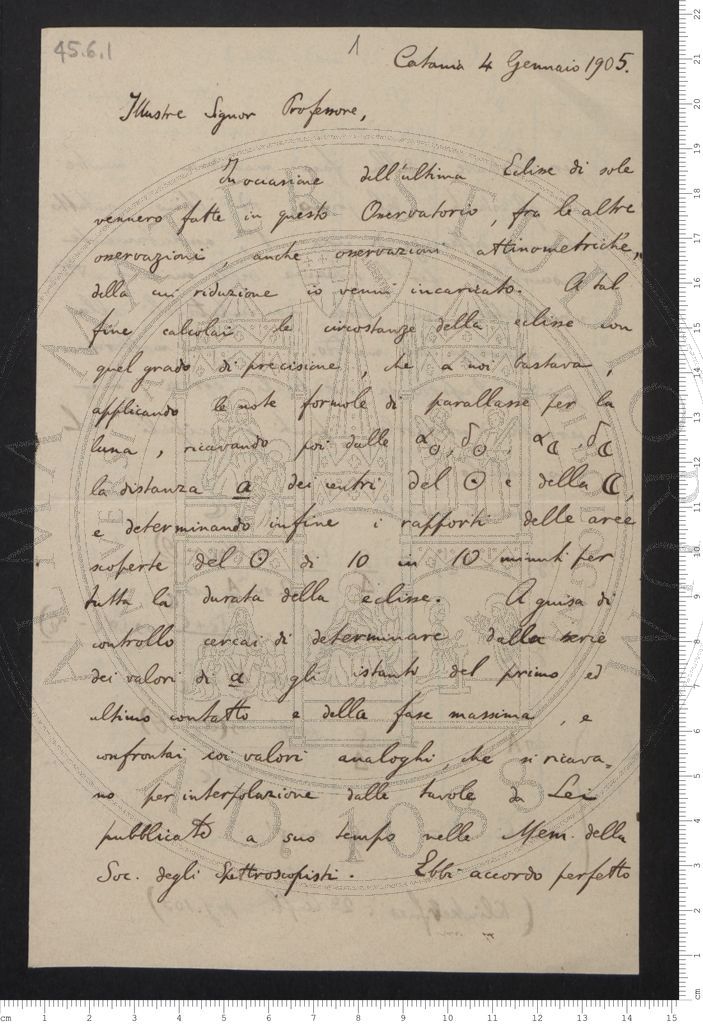 45.6.1
1
Catania 4 Gennaio 1905.
Illustre Signor Professore,
In occasione dell'ultima Eclisse di sole
vennero fatte in questo Osservatorio, fra le altre
osservazioni, anche osservazioni attinometriche,
della cui riduzione io venni incaricato. A tal
fine calcolai le circostanze della eclisse con
quel grado di precisione, che a noi bastava,
applicando le note formole di parallasse per la
luna, ricavando poi dalle α☉, δ☉, α☾, δ☾
la distanza a dei centri del ☉ e della ☾,
e determinando infine i rapporti delle aree
scoperte del ☉ di 10 in 10 minuti per
tutta la durata della eclisse. A guisa di
controllo cercai di determinare dalla serie
dei valori di a gli istanti del primo ed
ultimo contatto e della fase massima, e
confrontai coi valori analoghi, che si ricava-
no per interpolazione dalle tavole da Lei
pubblicate a suo tempo nelle Mem. della
Soc. degli Spettroscopisti. Ebbi accordo perfetto